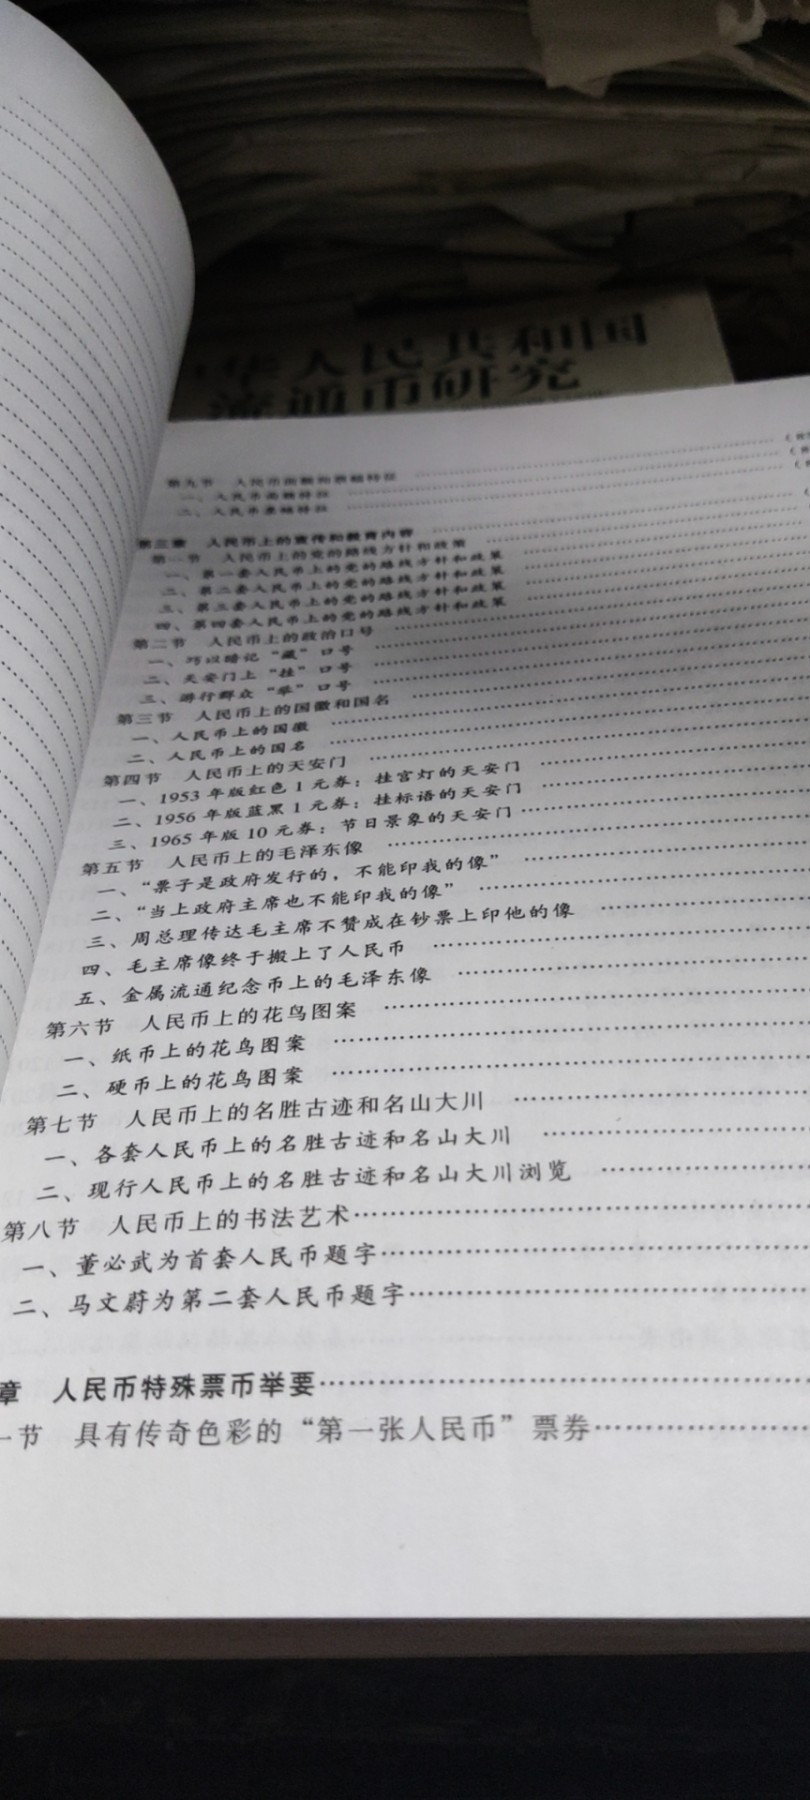 华人民共和国
流通币研究
第九节 人民币面额和票幅特征
一、人民币面额特征
二、人民币票幅特征
第三章 人民币上的宣传和教育内容
第一节 人民币上的党的路线方针和政策
一、第一套人民币上的党的路线方针和政策
二、第二套人民币上的党的路线方针和政策
三、第三套人民币上的党的路线方针和政策
四、第四套人民币上的党的路线方针和政策
第二节 人民币上的政治口号
一、巧以暗记“藏”口号
二、天安门上“挂”口号
三、游行群众“举”口号
第三节 人民币上的国徽和国名
一、人民币上的国徽
二、人民币上的国名
第四节 人民币上的天安门
一、1953年版红色1元券：挂宫灯的天安门
二、1956年版蓝黑1元券：挂标语的天安门
三、1965年版10元券：节日景象的天安门
第五节 人民币上的毛泽东像
一、“票子是政府发行的，不能印我的像”
二、“当上政府主席也不能印我的像”
三、周总理传达毛主席不赞成在钞票上印他的像
四、毛主席像终于搬上了人民币
五、金属流通纪念币上的毛泽东像
第六节 人民币上的花鸟图案
一、纸币上的花鸟图案
二、硬币上的花鸟图案
第七节 人民币上的名胜古迹和名山大川
一、各套人民币上的名胜古迹和名山大川
二、现行人民币上的名胜古迹和名山大川浏览
第八节 人民币上的书法艺术
一、董必武为首套人民币题字
二、马文蔚为第二套人民币题字
章 人民币特殊票币举要
一节 具有传奇色彩的“第一张人民币”票券